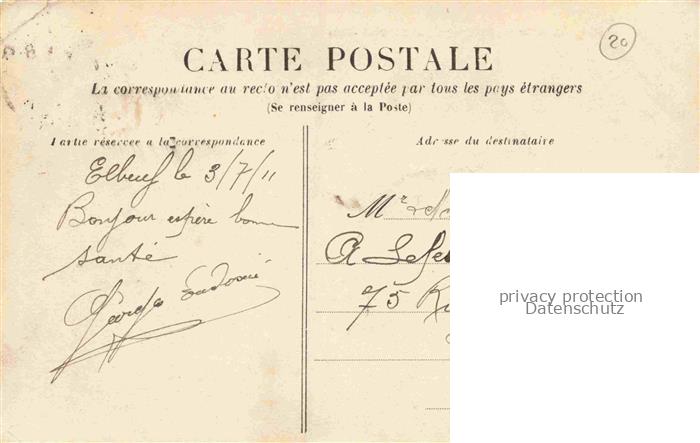 20
CARTE POSTALE
La correspondance au recto n'est pas acceptée par tous les pays étrangers
(Se renseigner à la Poste)
Partie réservée a la correspondance
Adresse du destinataire
Elbeuf le 3/7/11
Bonjour espère bonne
santé
Georges
Mr
A Lefe
75 Ru
privacy protection
Datenschutz